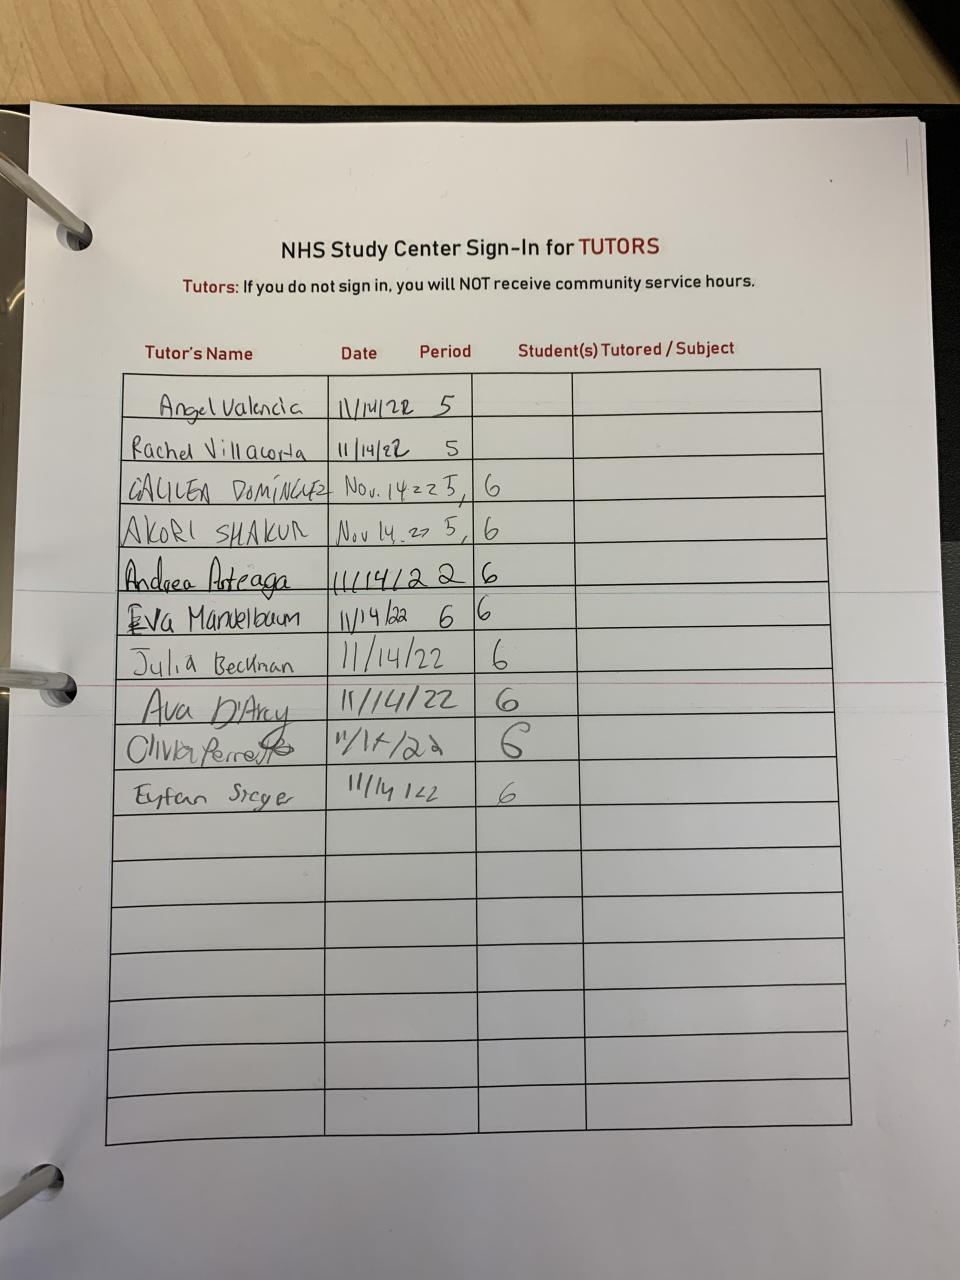 NHS Study Center Sign-In for TUTORS
Tutors: If you do not sign in, you will NOT receive community service hours.
Tutor's Name Date Period Student(s) Tutored / Subject
Angel Valencia 11/14/22 5
Rachel Villacorta 11/14/22 5
GALILEA DOMÍNGUEZ Nov. 14 22 5, 6
AKORI SHAKUR Nov 14. 22 5, 6
Andrea Arteaga 11/14/22 6
Eva Mandelbaum 11/14/22 6 6
Julia Beckman 11/14/22 6
Ava D'Arcy 11/14/22 6
Olivia 11/14/22 6
11/14/22 6